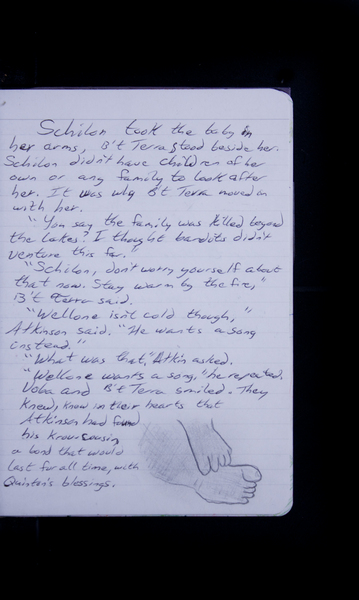 Schilon took the baby in
her arms, B't Terra stood beside her.
Schilon didn't have children of her
own or any family to look after
her. It was why B't Terra moved in
with her.
"You say the family was killed beyond
the lakes. I thought bandits didn't
venture this far."
"Schilon, don't worry yourself about
that now. Stay warm by the fire,"
B't Terra said.
"Wellone isn't cold though,"
Atkinson said. "He wants a song
instead."
"What was that," Atkin asked.
"Wellone wants a song," he repeated.
Voba and B't Terra smiled. They
knew, knew in their hearts that
Atkinson had found
his
a bond that would
last for all time, with
Quinten's blessings.